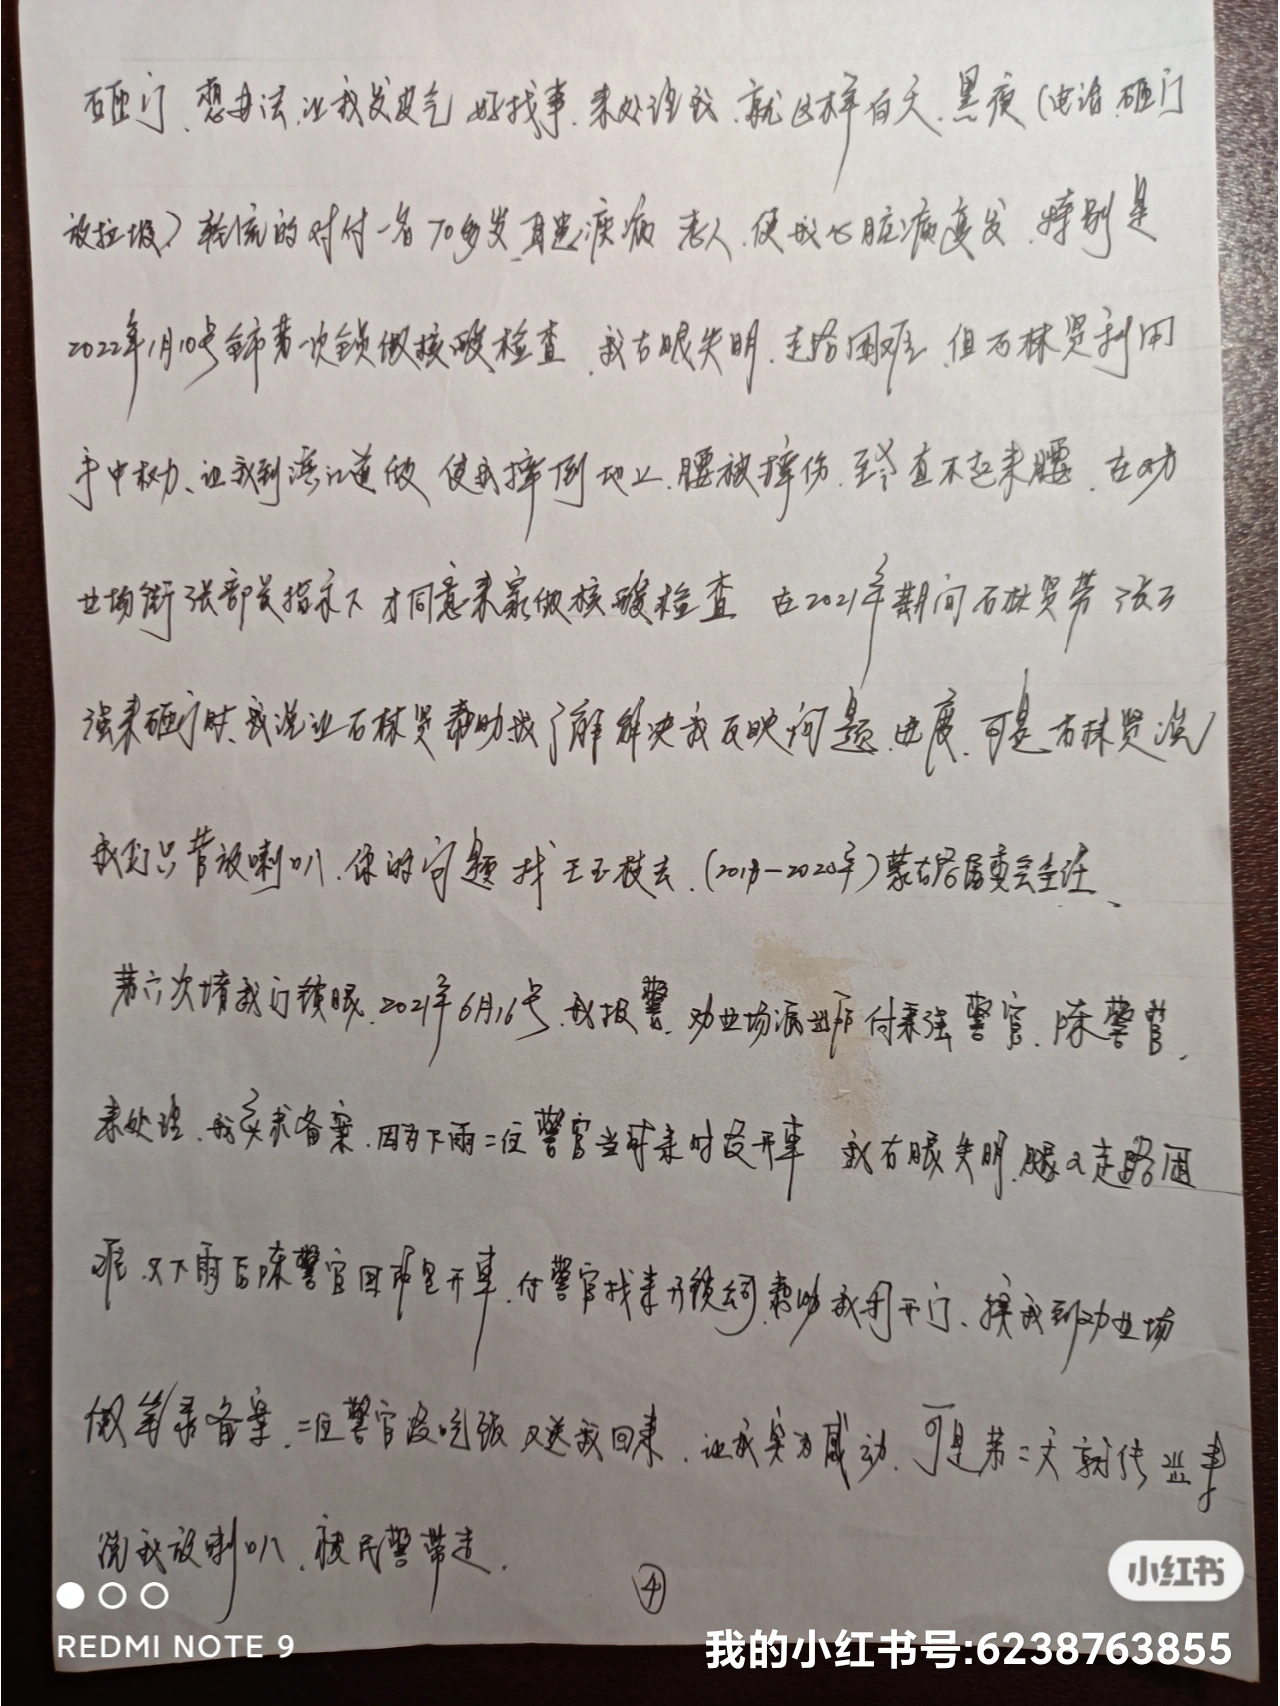 砸门、想办法让我发皮气好找事.来处治我.就这样白天.黑夜(电话.砸门
放拉圾)轮流的对付一名70多岁身患疾病老人.使我心脏病复发.特别是
2022年1月10号全市第一次全员做核酸检查.我右眼失明.走路困难.但石林贤利用
手中权力、让我到滨江道做 使我摔倒地上.腰被摔伤.至今直不起来腰.在劝
业场街张部长指示下才同意来家做核酸检查 在2021年期间石林贤带张
强来砸门时、我说让石林贤帮助我了解解决我反映问题.进度.可是石林贤说
我们只管放喇叭.你的问题找王玉枝去.(2018—2020年)蒙古路居委会主任、
第六次堵我门锁眼.2021年6月16号.我报警.劝业场派出所付秉强警官.陈警官.
来处理.我要求备案.因为下雨二位警官当时来时没开车 我右眼失明.腿又走路困
难.又下雨后陈警官回所里开车.付警官找来开锁公司帮助我开门、接我到劝业场
做笔录备案.二位警官没吃饭又送我回来.让我实为感动.可是第二天就传出来
说我放喇叭.被民警带走.
④
小红书
REDMI NOTE 9
我的小红书号:6238763855